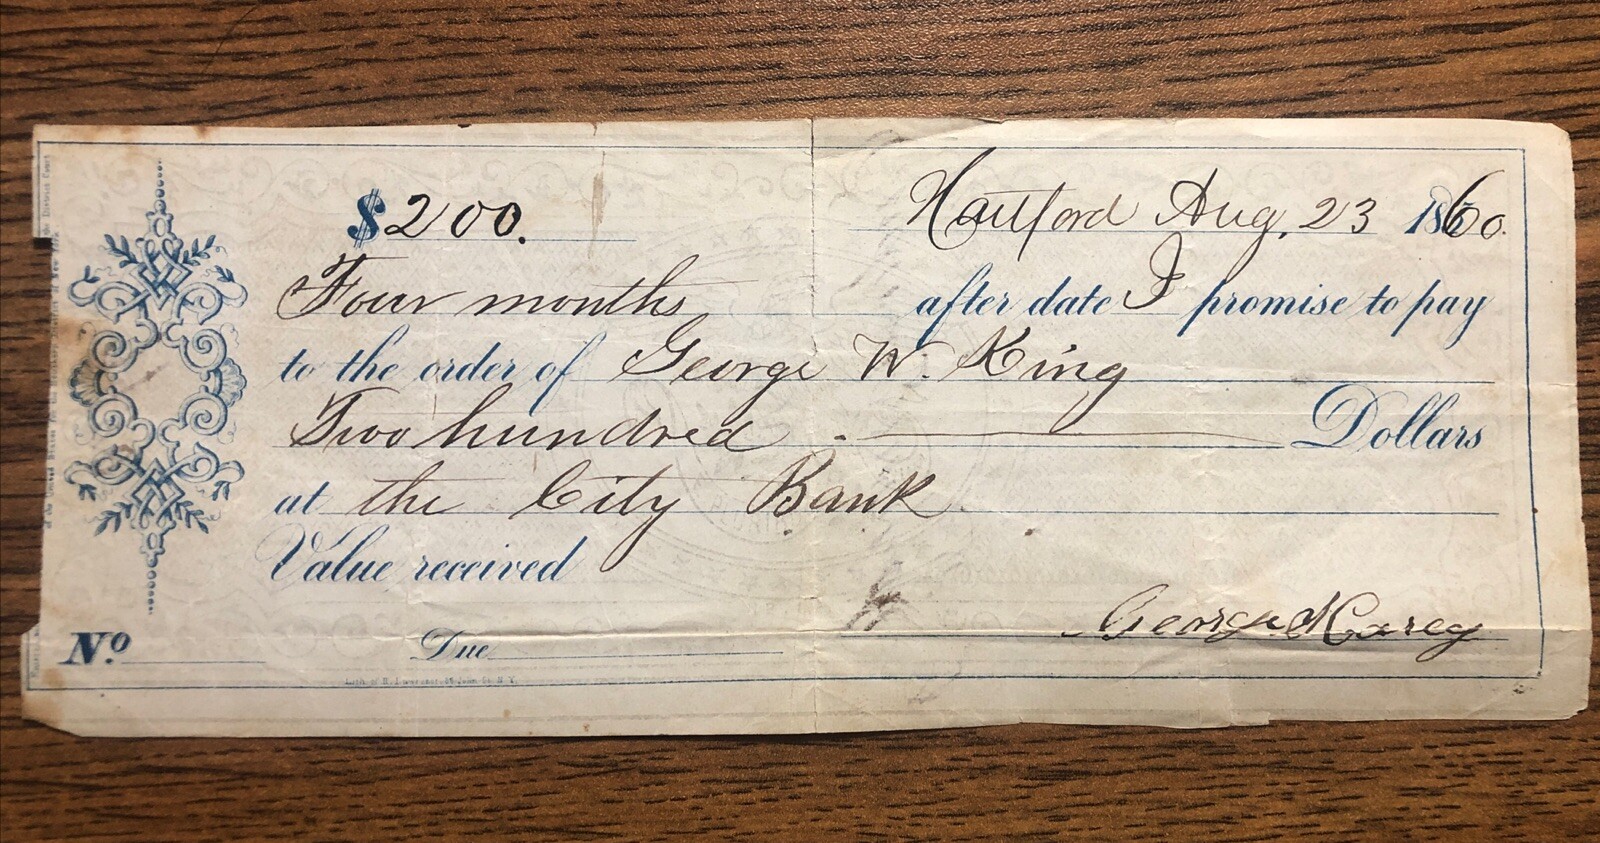 $200. Hartford Aug. 23 1860.
Four months after date I promise to pay
to the order of George W. King
Two hundred Dollars
at the City Bank
Value received
George H Carey
No. Due